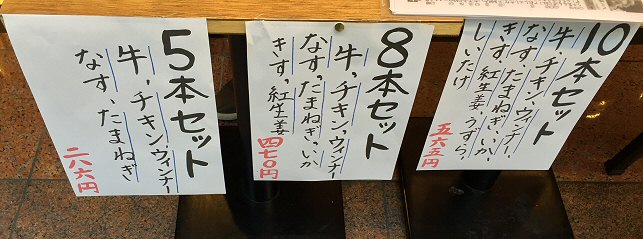 5本セット
牛、チキン、ウィンナー
なす、たまねぎ
二八六円
8本セット
牛、チキン、ウィンナー
なす、たまねぎ、いか
きす、紅生姜
四七〇円
10本セット
牛、チキン、ウィンナー、
なす、たまねぎ、いか、
きす、紅生姜、うずら、
しいたけ
五六五円